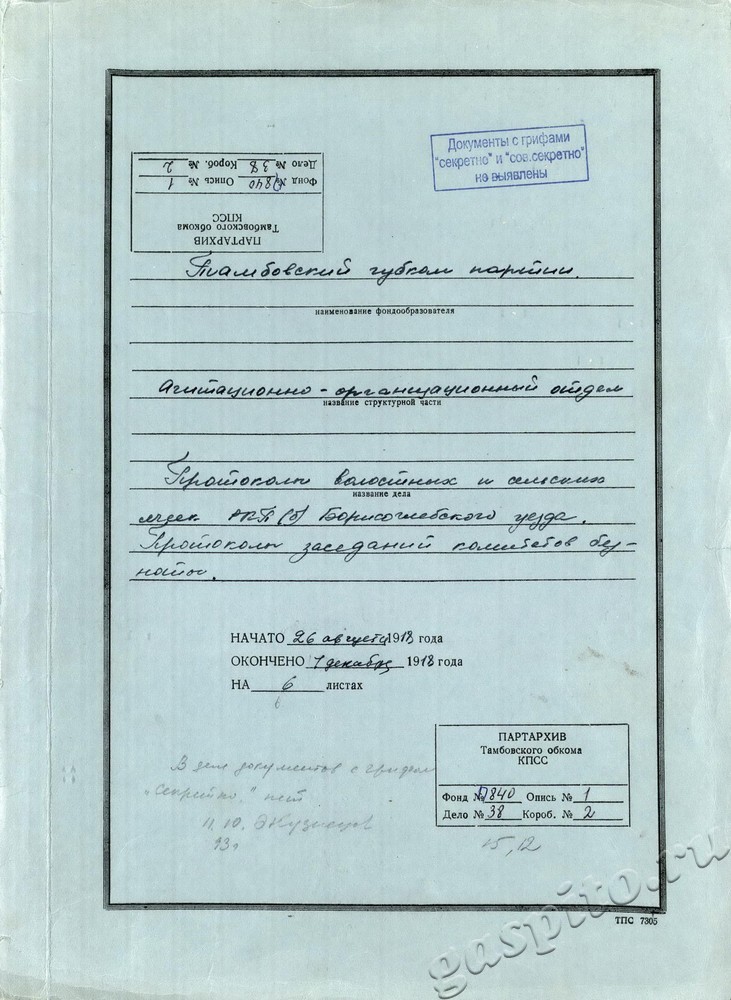 Документы с грифами
"секретно" и "сов.секретно"
не выявлены
ПАРТАРХИВ
Тамбовского обкома
КПСС
Фонд № П840 Опись № 1
Дело № 38 Короб. № 2
Тамбовский губком партии.
наименование фондообразователя
Агитационно-организационный отдел
название структурной части
Протоколы волостных и сельских
название дела
ячеек РКП(б) Борисоглебского уезда.
Протоколы заседаний комитетов бед-
ноты.
НАЧАТО 26 августа 1918 года
ОКОНЧЕНО 1 декабря 1918 года
НА 6 листах
6
В деле документов с грифом
"Секретно" нет
11.10. Кузнецов
93г
ПАРТАРХИВ
Тамбовского обкома
КПСС
Фонд № П840 Опись № 1
Дело № 38 Короб. № 2
15,12
ТПС 7305
gaspito.ru